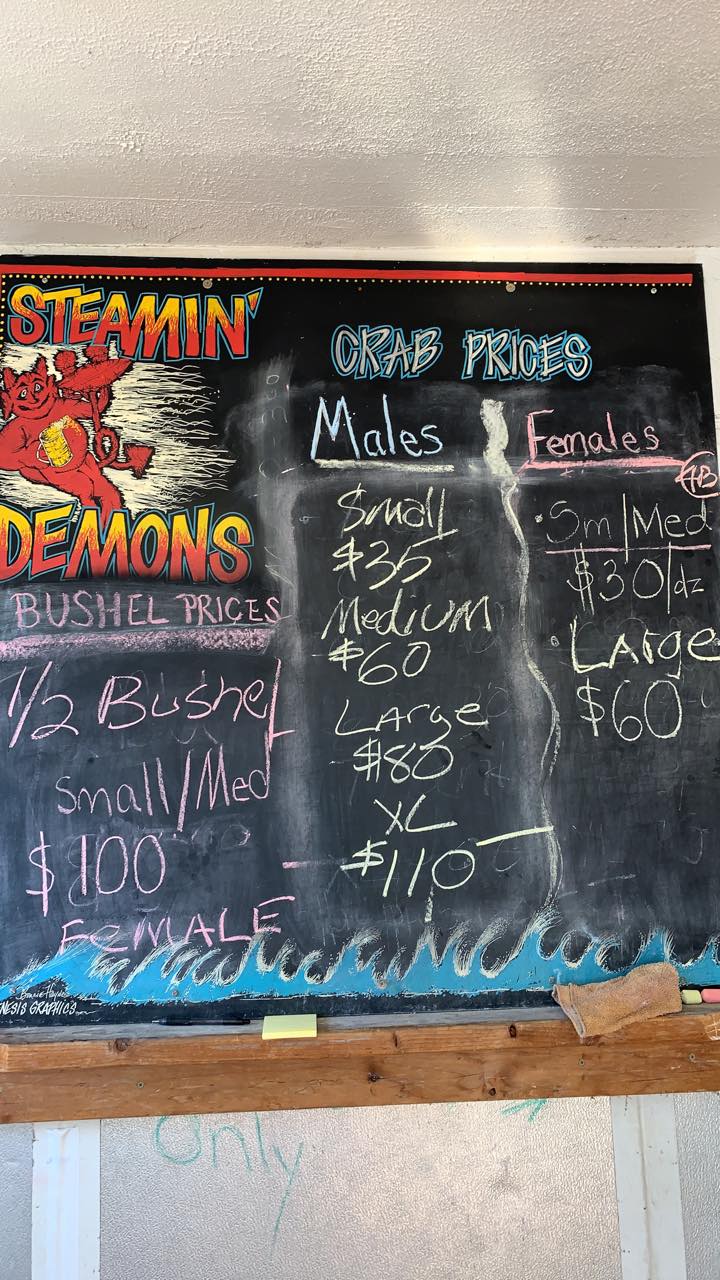 STEAMIN'
DEMONS
BUSHEL PRICES
1/2 Bushel
Small/Med
$100
FEMALE
CRAB PRICES
Males
Small
$35
Medium
$60
Large
$80
XL
$110
Females
Sm/Med
$30/dz
Large
$60
NESIS GRAPHICS
Only